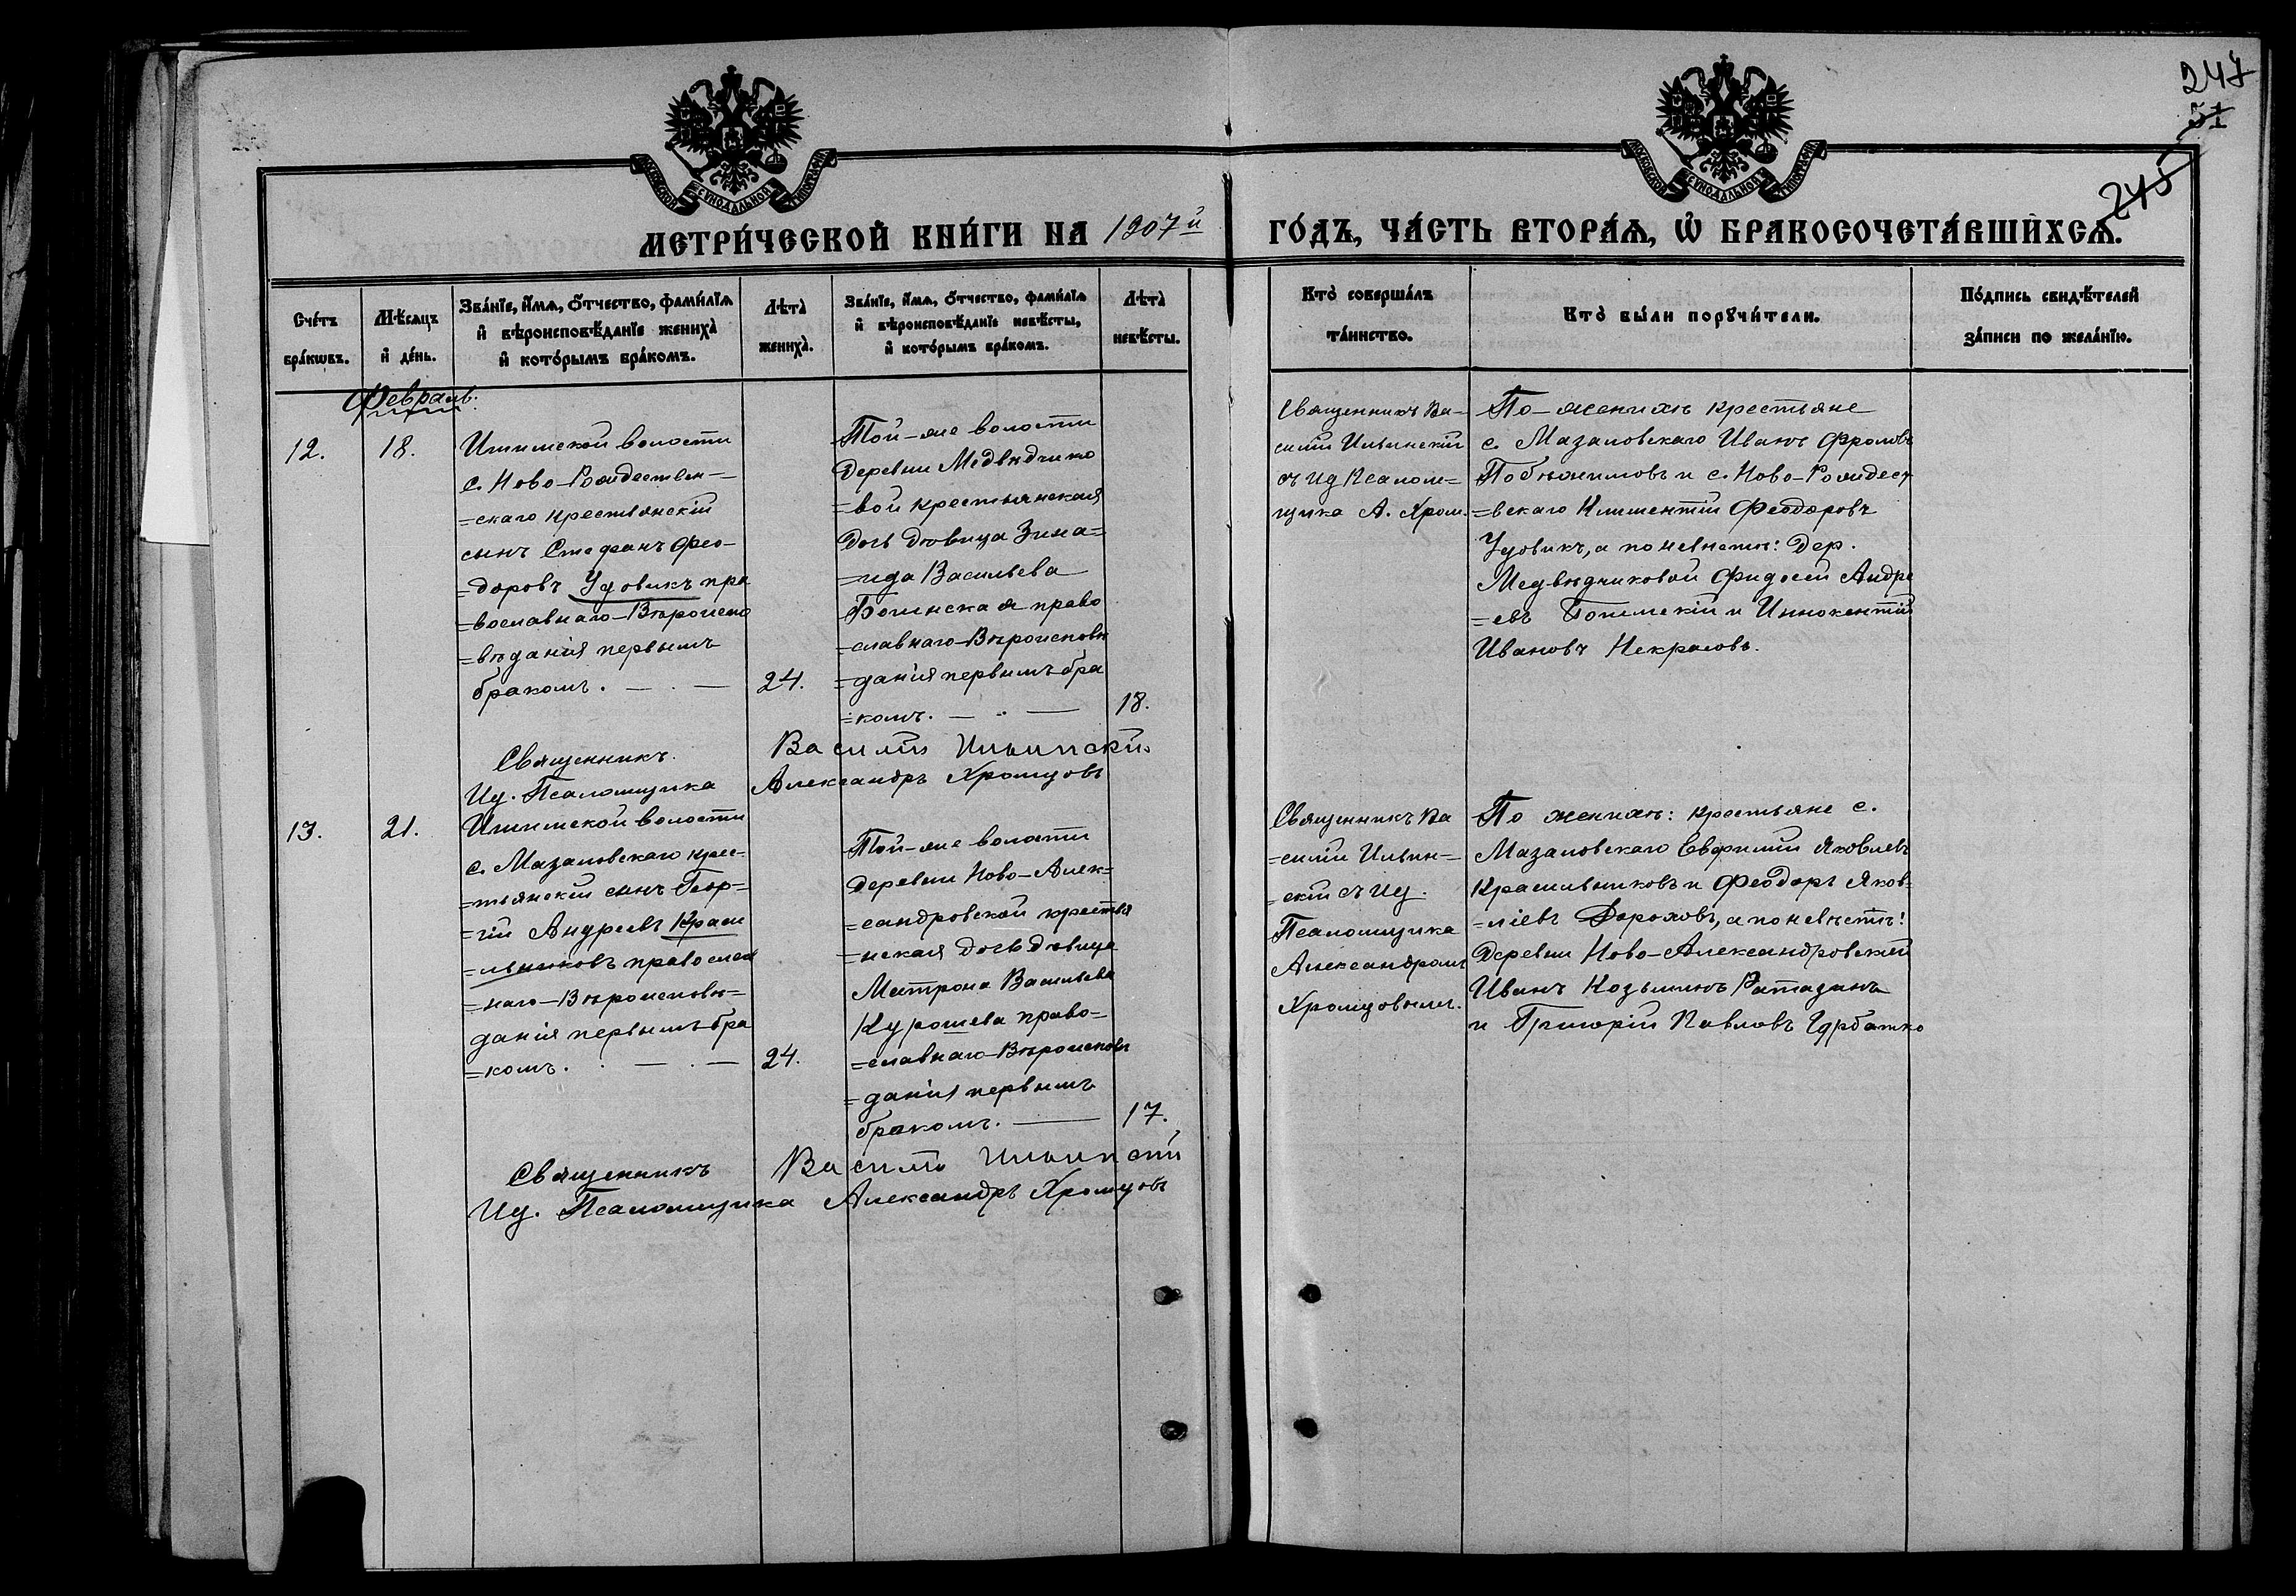 247
51
245
МОСКОВСКОЙ СѴНОДАЛЬНОЙ ТИПОГРАФІИ
МОСКОВСКОЙ СѴНОДАЛЬНОЙ ТИПОГРАФІИ
МЕТРИ́ЧЕСКОЙ КНИ́ГИ НА 1907й ГО́ДЪ, ЧА́СТЬ ВТОРА́Ѧ, Ѡ҆ БРАКОСОЧЕТА́ВШИХСѦ.
Сче́тъ
бра́кѡвъ.
Мѣ́сѧцъ
и҆ де́нь.
Зва́нїе, и҆́мѧ, ѻ҆́тчество, фами́лїѧ
и҆ вѣроисповѣ́данїе жениха̀
и҆ кото́рымъ бра́комъ.
Лѣта̀
жениха̀.
Зва́нїе, и҆́мѧ, ѻ҆́тчество, фами́лїѧ
и҆ вѣроисповѣ́данїе невѣ́сты,
и҆ кото́рымъ бра́комъ.
Лѣта̀
невѣ́сты.
Кто̀ соверша́лъ
та́инство.
Кто̀ бы́ли порꙋчи́тели.
По́дпись свидѣ́телей
за́писи по жела́нїю.
Февраль.
12.
18.
Ишимской волости
с. Ново-Рождествен-
=скаго крестьянскій
сынъ Стефанъ Фео-
=доровъ Удовикъ пра
=вославнаго-Вѣроиспо
=вѣданія первымъ
бракомъ.
24.
Той-же волости
деревни Медвѣдчико
=вой крестьянская
дочь дѣвица Зина=
=ида Васильева
право
=славнаго-Вѣроисповѣ
=данія первымъ бра
=комъ.
18.
Священникъ Ва-
силій Ильинскій
съ ид Псалом=
щика А. Хром.
По-женихѣ крестьяне
с. Мазаловскаго Иванъ Фроловъ
и с. Ново-Рождест
=вскаго Климентій Феодоровъ
Удовикъ, а по невѣстѣ: Дер.
Медвѣдчиковой Фидосій Андре
=евъ и Иннокентій
Ивановъ Некрасовъ.
Священникъ Василій Ильинскій
Ид. Псаломщика Александръ Хромцовъ
13.
21.
Ишимской волости
с. Мазаловскаго крес=
=тьянскій сынъ Геор=
=гій Андреевъ Краси
=льниковъ православ
=наго-Вѣроисповѣ=
данія первымъ бра
=комъ.
24.
Той-же волости
деревни Ново-Алек=
=сандровской крестья
=нская дочь дѣвица
Матрона Васильева
Курошева право=
=славнаго-Вѣроисповѣ
=данія первымъ
бракомъ.
17.
Священникъ Ва
=силій Ильин=
=скій съ ид.
Псаломщика
Александромъ
Хромцовымъ.
По женихѣ: крестьяне с.
Мазаловскаго Евфимій Яковлевъ
Красильниковъ и Феодоръ Яков=
=лiевъ Дороховъ, а по невѣстѣ:
Деревни Ново-Александровской
Иванъ Козьминъ
и Григорій Павловъ
Священникъ Василій Ильинскій
Ид. Псаломщика Александръ Хромцовъ